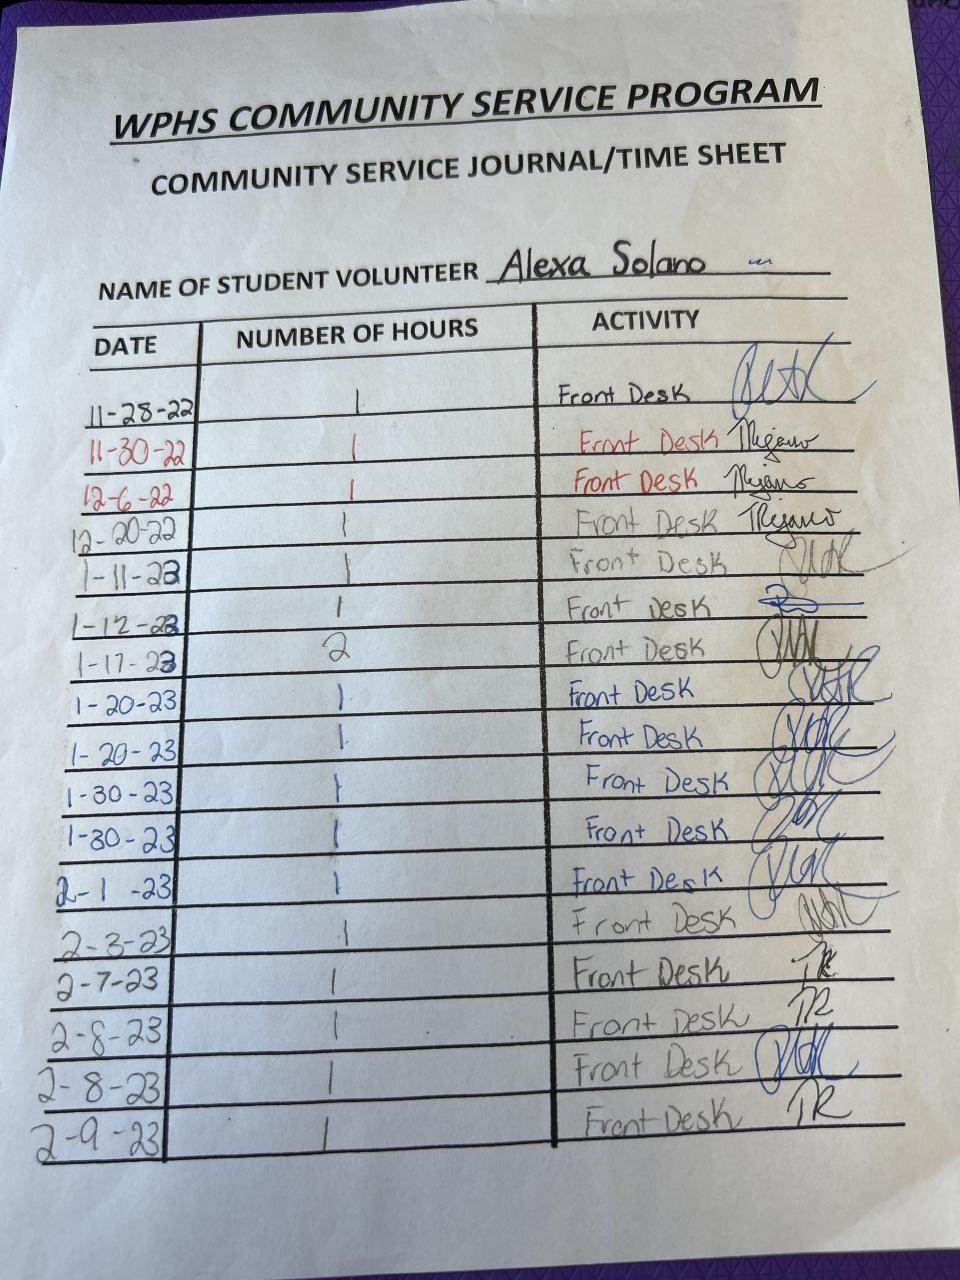 WPHS COMMUNITY SERVICE PROGRAM
COMMUNITY SERVICE JOURNAL/TIME SHEET
NAME OF STUDENT VOLUNTEER Alexa Solano
DATE NUMBER OF HOURS ACTIVITY
11-28-22 1 Front Desk
11-30-22 1 Front Desk
12-6-22 1 Front Desk
12-20-22 1 Front Desk
1-11-23 1 Front Desk
1-12-23 1 Front Desk
1-17-23 2 Front Desk
1-20-23 1 Front Desk
1-20-23 1 Front Desk
1-30-23 1 Front Desk
1-30-23 1 Front Desk
2-1-23 1 Front Desk
2-3-23 1 Front Desk
2-7-23 1 Front Desk TR
2-8-23 1 Front Desk TR
2-8-23 1 Front Desk
2-9-23 1 Front Desk TR